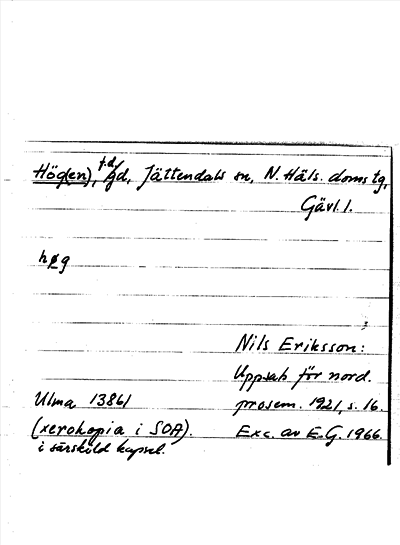 Hög(en), f.d. gd, Jättendals sn, N. Häls. doms tg,
Gävl. l.
høg
Nils Eriksson:
Uppsats för nord.
Ulma 13861 prosem. 1921, s. 16.
(xerokopia i SOA). Exc. av E.G. 1966.
i särskild kapsel.